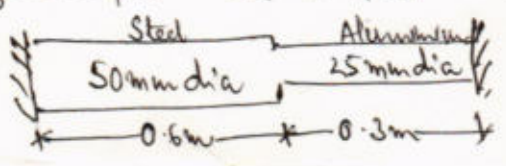 Steel Aluminium
50mm dia 25mm dia
0.6m 0.3m